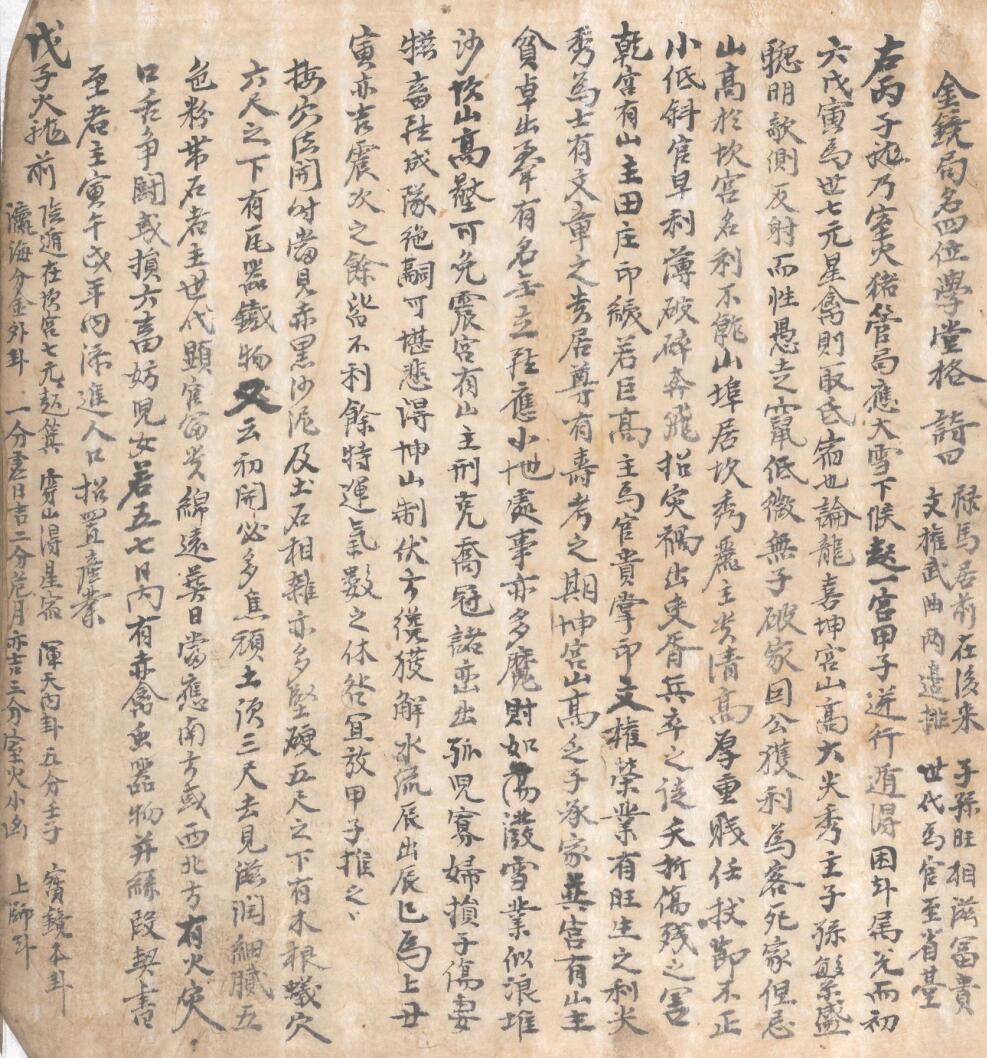 金鏡局名四位學堂格 詩曰 祿馬居前在後來 子孫旺相滋冨貴
文權武曲兩邉排 世代為官至省䑓
右丙子𨀁乃室火猪管局應大雪下候起一宮甲子逆行遁得困卦属兌而初
六戊寅為世七元星禽則取氐宿也論龍喜坤宮山高大尖秀主子孫繁盛
聰明歌側反射而性愚走竄低微無子破家回公獲利為客死家但忌
山高於坎宮名利不能山埠居坎秀麗主贵清高厚重賤任技節不正
小低斜官卑利薄破碎奔飛招灾禍出吏胥兵卒之徒夭折傷残之害
乾宮有山主田庄印綬若巨高主為官貴掌印文權榮業有旺生之利尖
秀為士有文章之贵居尊有壽考之期坤宮山高乏子承家艮宮有山主
貧卓出羣有名無立
沙坎山高壓可免震宮有山主刑克喬冠諸峦出孤児寡婦損子傷妻
犧畜成隊絶嗣可堪悲得坤山制伏方獲解水流辰出辰巳為上丑
寅亦吉震次之餘皆不利餘特運氣數之休咎冝放甲子推之
按穴法開時當見赤黑沙泥及土石相雜亦多堅硬五尺之下有木根蟻穴
六尺之下有瓦器鐵物又云初開必多焦頑土湏三尺去見滋潤細膩五
色粉帶石者主世代顯官富贵綿遠葬日當應南方或西北方有火灾
口舌争鬪或損六畜妨児女若五七日内有赤禽虫器物并絲段契書
至者主寅午戌年内添進人口招置産業
戊子火𨀁前 陰遁在坎宮七元起箕 穿山得星宿 渾天内卦五分壬子 寳鏡本卦
瀛海分金外卦 一分虚日吉二分危月亦吉三分室火小凶 上師卦